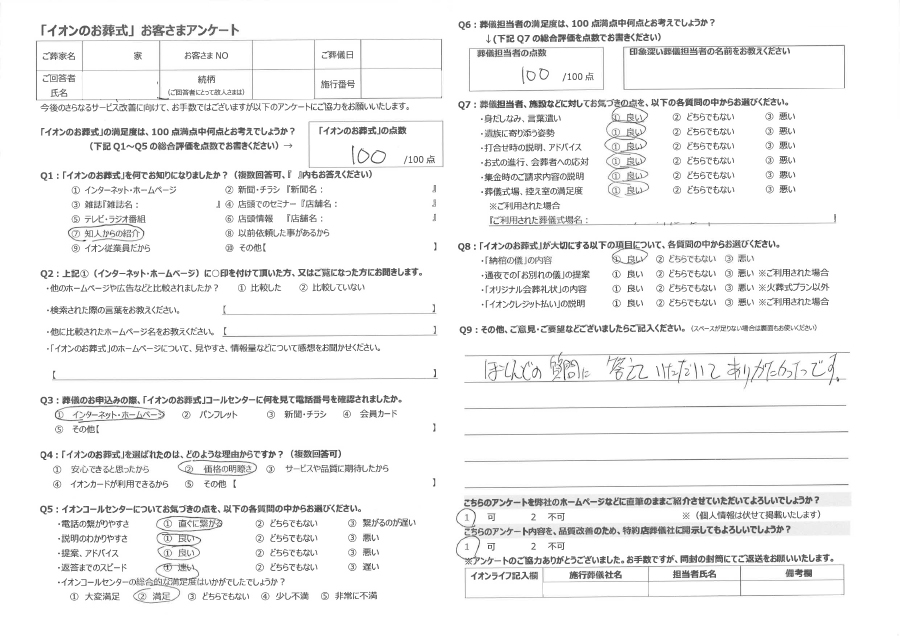 「イオンのお葬式」お客さまアンケート
ご葬家名 家 お客さまNO ご葬儀日
ご回答者氏名 続柄(ご回答者にとって故人さまは) 施行番号
今後のさらなるサービス改善に向けて、お手数ではございますが以下のアンケートにご協力をお願いいたします。
「イオンのお葬式」の満足度は、100点満点中何点とお考えでしょうか？
（下記Q1～Q5の総合評価を点数でお書きください）→
「イオンのお葬式」の点数
100 /100点
Q1：「イオンのお葬式」を何でお知りになりましたか？（複数回答可、『 』内もお答えください）
① インターネット・ホームページ ② 新聞・チラシ『新聞名： 』
③ 雑誌『雑誌名： 』 ④ 店頭でのセミナー『店舗名： 』
⑤ テレビ・ラジオ番組 ⑥ 店頭情報 『店舗名： 』
⑦ 知人からの紹介 ⑧ 以前依頼した事があるから
⑨ イオン従業員だから ⑩ その他【 】
Q2：上記①（インターネット・ホームページ）に○印を付けて頂いた方、又はご覧になった方にお聞きします。
・他のホームページや広告などと比較されましたか？ ① 比較した ② 比較していない
・検索された際の言葉をお教えください。 【 】
・他に比較されたホームページ名をお教えください。【 】
・「イオンのお葬式」のホームページについて、見やすさ、情報量などについて感想をお聞かせください。
【 】
Q3：葬儀のお申込みの際、「イオンのお葬式」コールセンターに何を見て電話番号を確認されましたか。
① インターネット・ホームページ ② パンフレット ③ 新聞・チラシ ④ 会員カード
⑤ その他【 】
Q4：「イオンのお葬式」を選ばれたのは、どのような理由からですか？（複数回答可）
① 安心できると思ったから ② 価格の明瞭さ ③ サービスや品質に期待したから
④ イオンカードが利用できるから ⑤ その他【 】
Q5：イオンコールセンターについてお気づきの点を、以下の各質問の中からお選びください。
・電話の繋がりやすさ ① 直ぐに繋がる ② どちらでもない ③ 繋がるのが遅い
・説明のわかりやすさ ① 良い ② どちらでもない ③ 悪い
・提案、アドバイス ① 良い ② どちらでもない ③ 悪い
・返答までのスピード ① 速い ② どちらでもない ③ 遅い
・イオンコールセンターの総合的な満足度はいかがでしたでしょうか？
① 大変満足 ② 満足 ③ どちらでもない ④ 少し不満 ⑤ 非常に不満
Q6：葬儀担当者の満足度は、100点満点中何点とお考えでしょうか？
↓（下記Q7の総合評価を点数でお書きください）
葬儀担当者の点数
100 /100点
印象深い葬儀担当者の名前をお教えください
Q7：葬儀担当者、施設などに対してお気づきの点を、以下の各質問の中からお選びください。
・身だしなみ、言葉遣い ① 良い ② どちらでもない ③ 悪い
・遺族に寄り添う姿勢 ① 良い ② どちらでもない ③ 悪い
・打合せ時の説明、アドバイス ① 良い ② どちらでもない ③ 悪い
・お式の進行、会葬者への応対 ① 良い ② どちらでもない ③ 悪い
・集金時のご請求内容の説明 ① 良い ② どちらでもない ③ 悪い
・葬儀式場、控え室の満足度 ① 良い ② どちらでもない ③ 悪い
※ご利用された場合
『ご利用された葬儀式場名： 』
Q8：「イオンのお葬式」が大切にする以下の項目について、各質問の中からお選びください。
・「納棺の儀」の内容 ① 良い ② どちらでもない ③ 悪い
・通夜での「お別れの儀」の提案 ① 良い ② どちらでもない ③ 悪い ※ご利用された場合
・「オリジナル会葬礼状」の内容 ① 良い ② どちらでもない ③ 悪い ※火葬式プラン以外
・「イオンクレジット払い」の説明 ① 良い ② どちらでもない ③ 悪い ※ご利用された場合
Q9：その他、ご意見・ご要望などございましたらご記入ください。（スペースが足りない場合は裏面もお使いください）
ほとんどの質問に答えていただいてありがたかったです。
こちらのアンケートを弊社のホームページなどに直筆のままご紹介させていただいてよろしいでしょうか？
1 可 2 不可 ※（個人情報は伏せて掲載いたします）
こちらのアンケート内容を、品質改善のため、特約店葬儀社に開示してもよろしいでしょうか？
1 可 2 不可
※アンケートのご協力ありがとうございました。お手数ですが、同封の封筒にてご返送をお願いいたします。
イオンライフ記入欄 施行葬儀社名 担当者氏名 備考欄